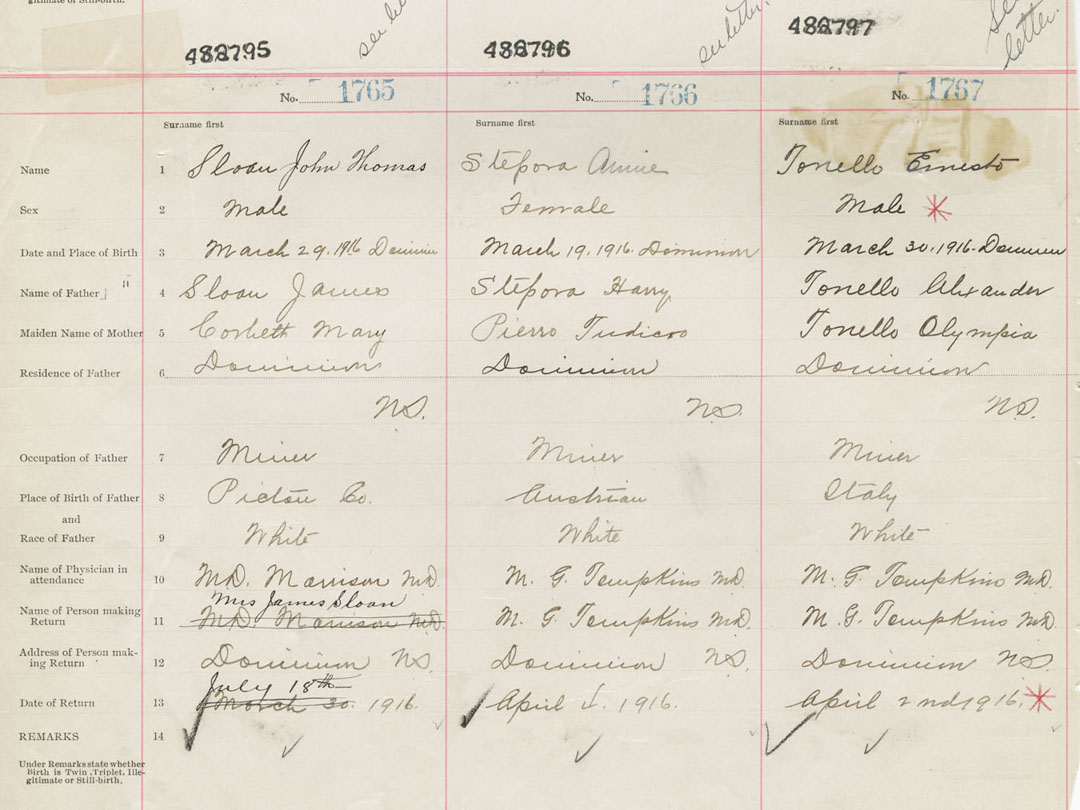 gitimate or Still-birth.
see letter.
see letter.
See letter.
488795 488796 488797
No. 1765 No. 1766 No. 1767
Surname first Surname first Surname first
Name 1 Sloan John Thomas Stepora Annie Tonello Ernesto
Sex 2 Male Female Male *
Date and Place of Birth 3 March 29. 1916 Dominion March 19, 1916. Dominion March 30. 1916. Dominion
Name of Father 4 Sloan James Stepora Harry Tonello Alexander
Maiden Name of Mother 5 Corbett Mary Pierro Tudicro Tonello Olympia
Residence of Father 6 Dominion Dominion Dominion
N.S. N.S. N.S.
Occupation of Father 7 Miner Miner Miner
Place of Birth of Father 8 Pictou Co. Austrian Italy
and
Race of Father 9 White White White
Name of Physician in
attendance 10 M.D. Morrison M.D. M. G. Tompkins M.D. M. G. Tompkins M.D.
Mrs James Sloan
Name of Person making
Return 11 M.D. Morrison M.D. M. G. Tompkins M.D. M. G. Tompkins M.D.
Address of Person mak-
ing Return 12 Dominion N.S. Dominion N.S. Dominion N.S.
July 18th
Date of Return 13 March 30. 1916. April 1916. April 2nd 1916. *
REMARKS 14
Under Remarks state whether
Birth is Twin, Triplet, Ille-
gitimate or Still-birth.